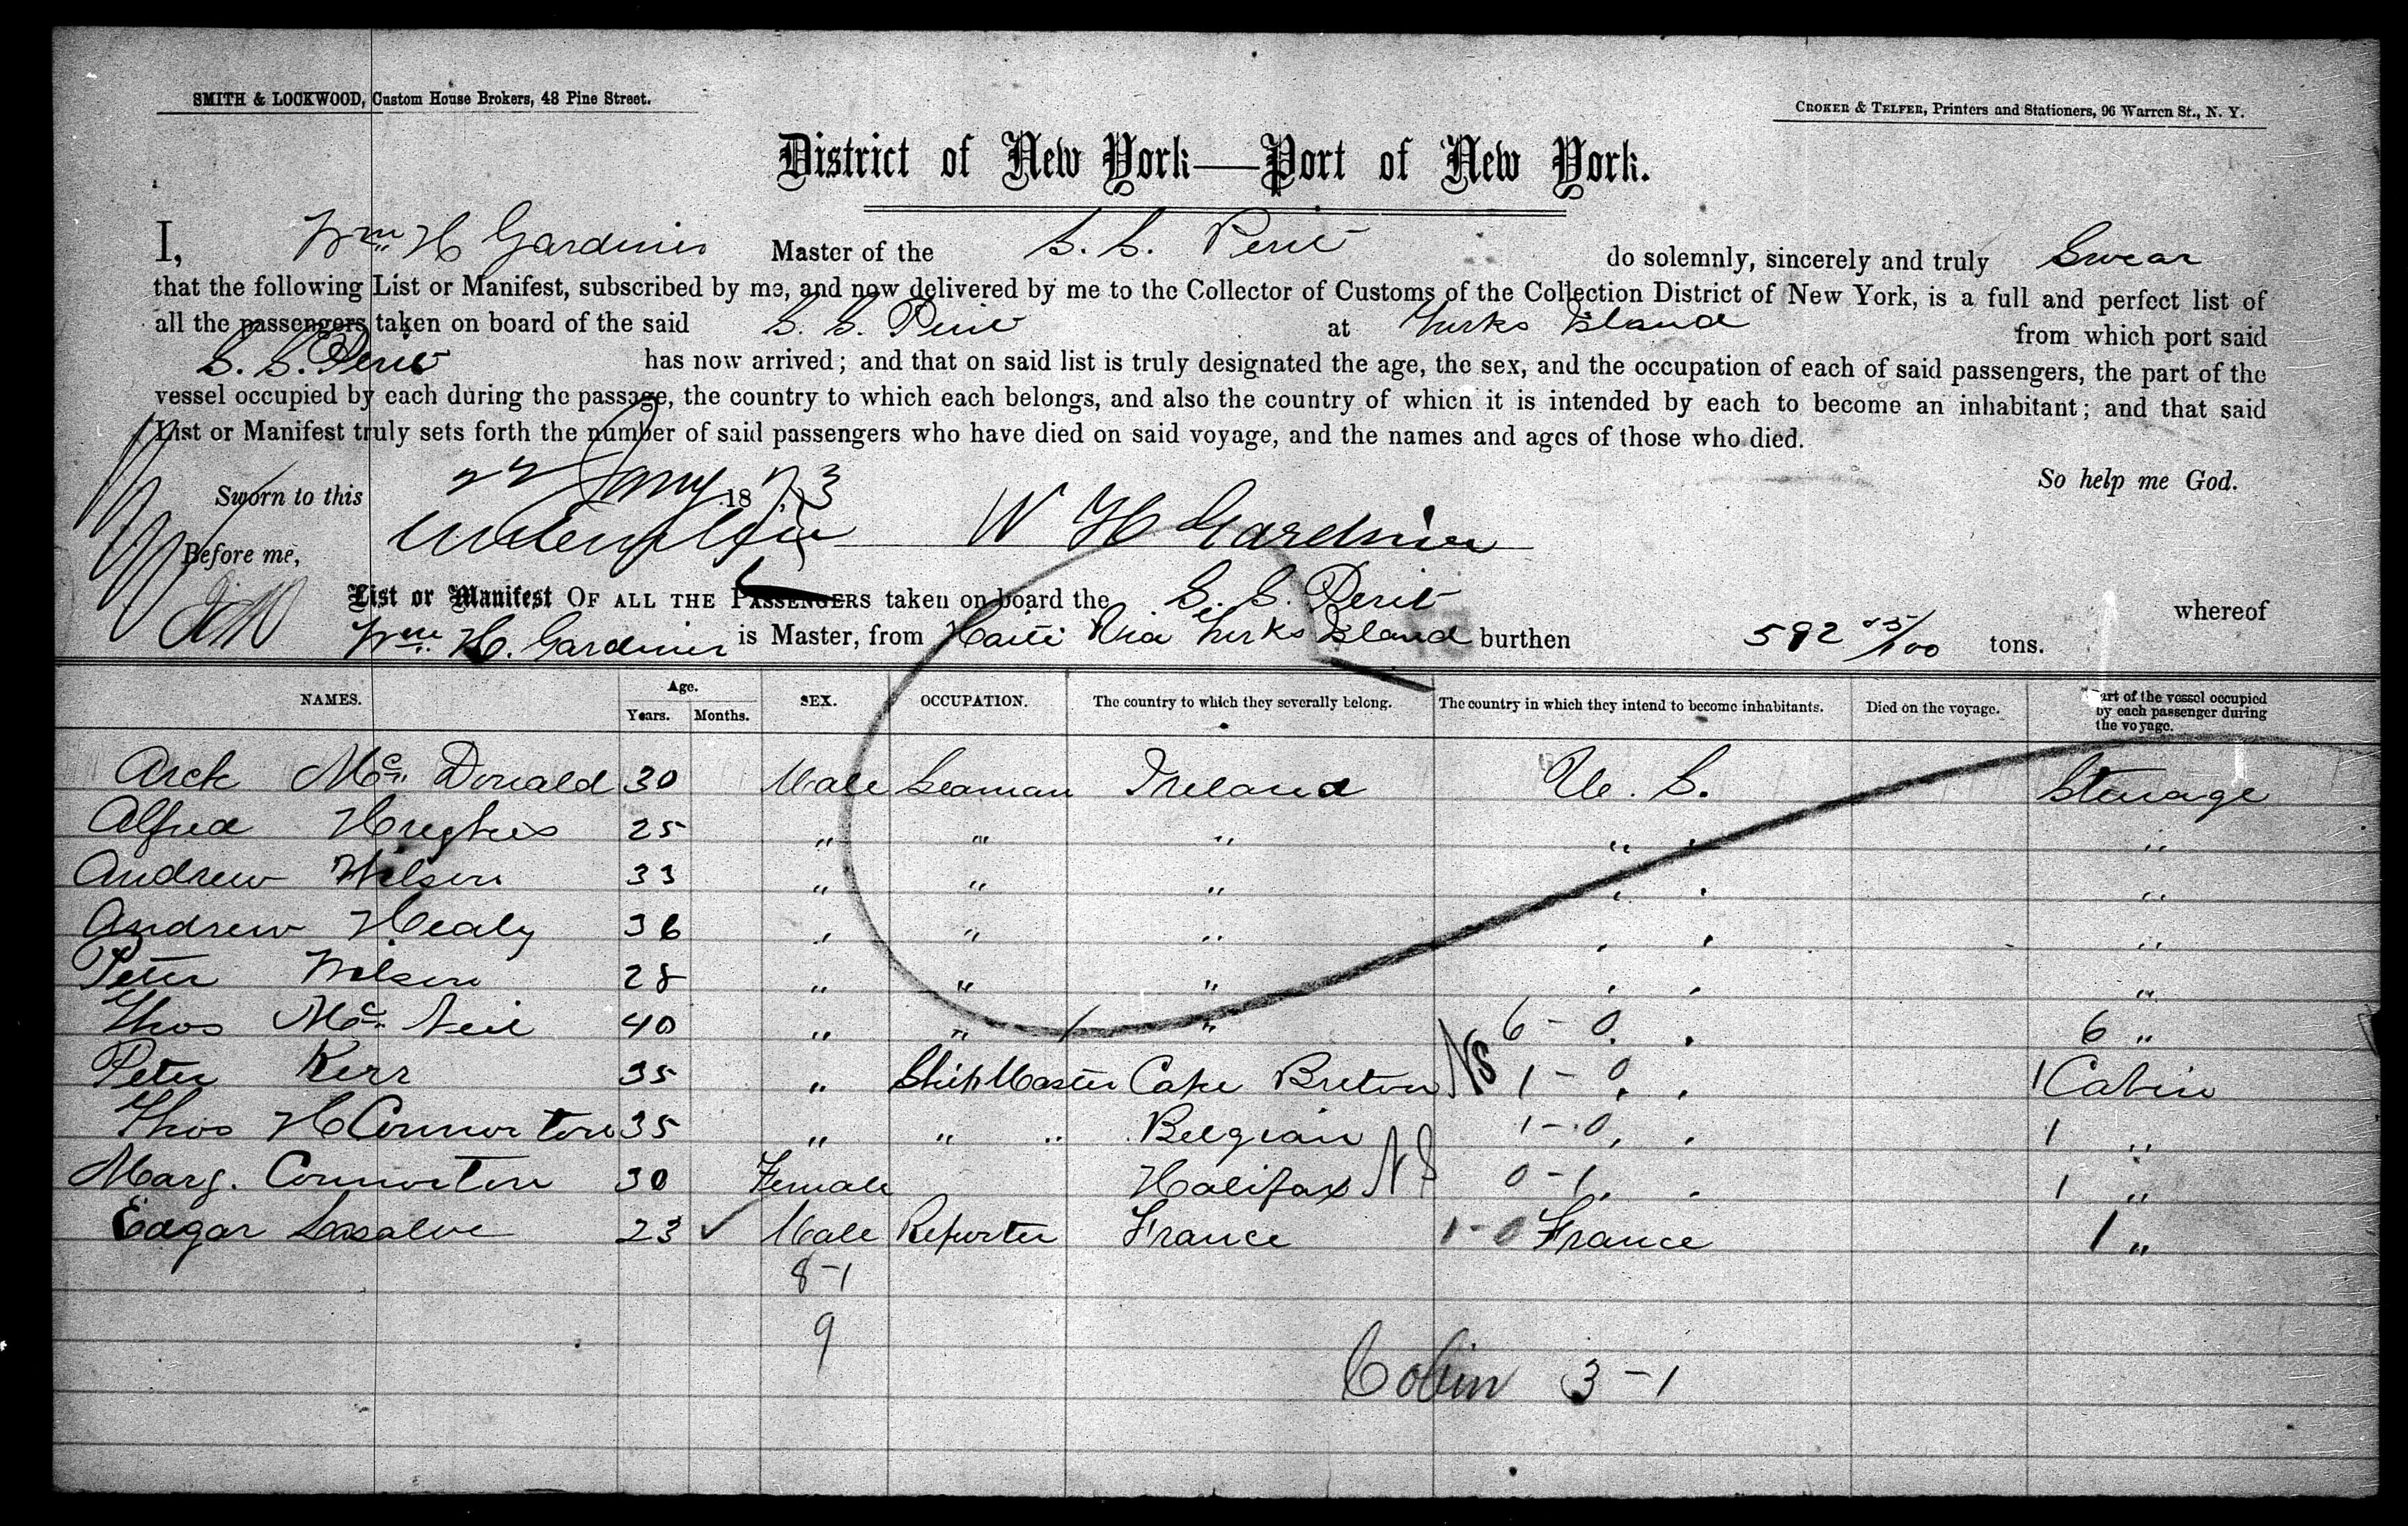 SMITH & LOCKWOOD, Custom House Brokers, 48 Pine Street.
CROKER & TELFER, Printers and Stationers, 96 Warren St., N. Y.
District of New York—Port of New York.
I, Wm H Gardiner Master of the S. S. Perit do solemnly, sincerely and truly Swear
that the following List or Manifest, subscribed by me, and now delivered by me to the Collector of Customs of the Collection District of New York, is a full and perfect list of
all the passengers taken on board of the said S. S. Perit at Turks Island from which port said
S. S. Perit has now arrived; and that on said list is truly designated the age, the sex, and the occupation of each of said passengers, the part of the
vessel occupied by each during the passage, the country to which each belongs, and also the country of which it is intended by each to become an inhabitant; and that said
List or Manifest truly sets forth the number of said passengers who have died on said voyage, and the names and ages of those who died.
So help me God.
Sworn to this 22 Jany 1873
Before me, W H Gardiner
List or Manifest OF ALL THE PASSENGERS taken on board the S. S. Perit whereof
Wm. H. Gardiner is Master, from Haiti Via Turks Island burthen 592 25/100 tons.
NAMES. Age. Years. Months. SEX. OCCUPATION. The country to which they severally belong. The country in which they intend to become inhabitants. Died on the voyage. Part of the vessel occupied by each passenger during the voyage.
Arck Mc Donald 30 Male Seaman Ireland U. S. Steerage
Alfred Hughes 25 " " " " " "
Andrew Wilson 33 " " " " " "
Andrew Healy 36 " " " " " "
Peter Wilson 28 " " " " " "
Thos Mc Neil 40 " " " 6 - 0 " " 6 "
Peter Kerr 35 " Ship Master Cape Breton NS 1 - 0 " " 1 Cabin
Thos H Connorton 35 " " " Belgian 1 - 0 " " 1 "
Marg. Connorton 30 Female Halifax NS 0 - 1 " " 1 "
Edgar Lasalve 23 ✓ Male Reporter France 1 - 0 France 1 "
8-1
9
Cabin 3 - 1